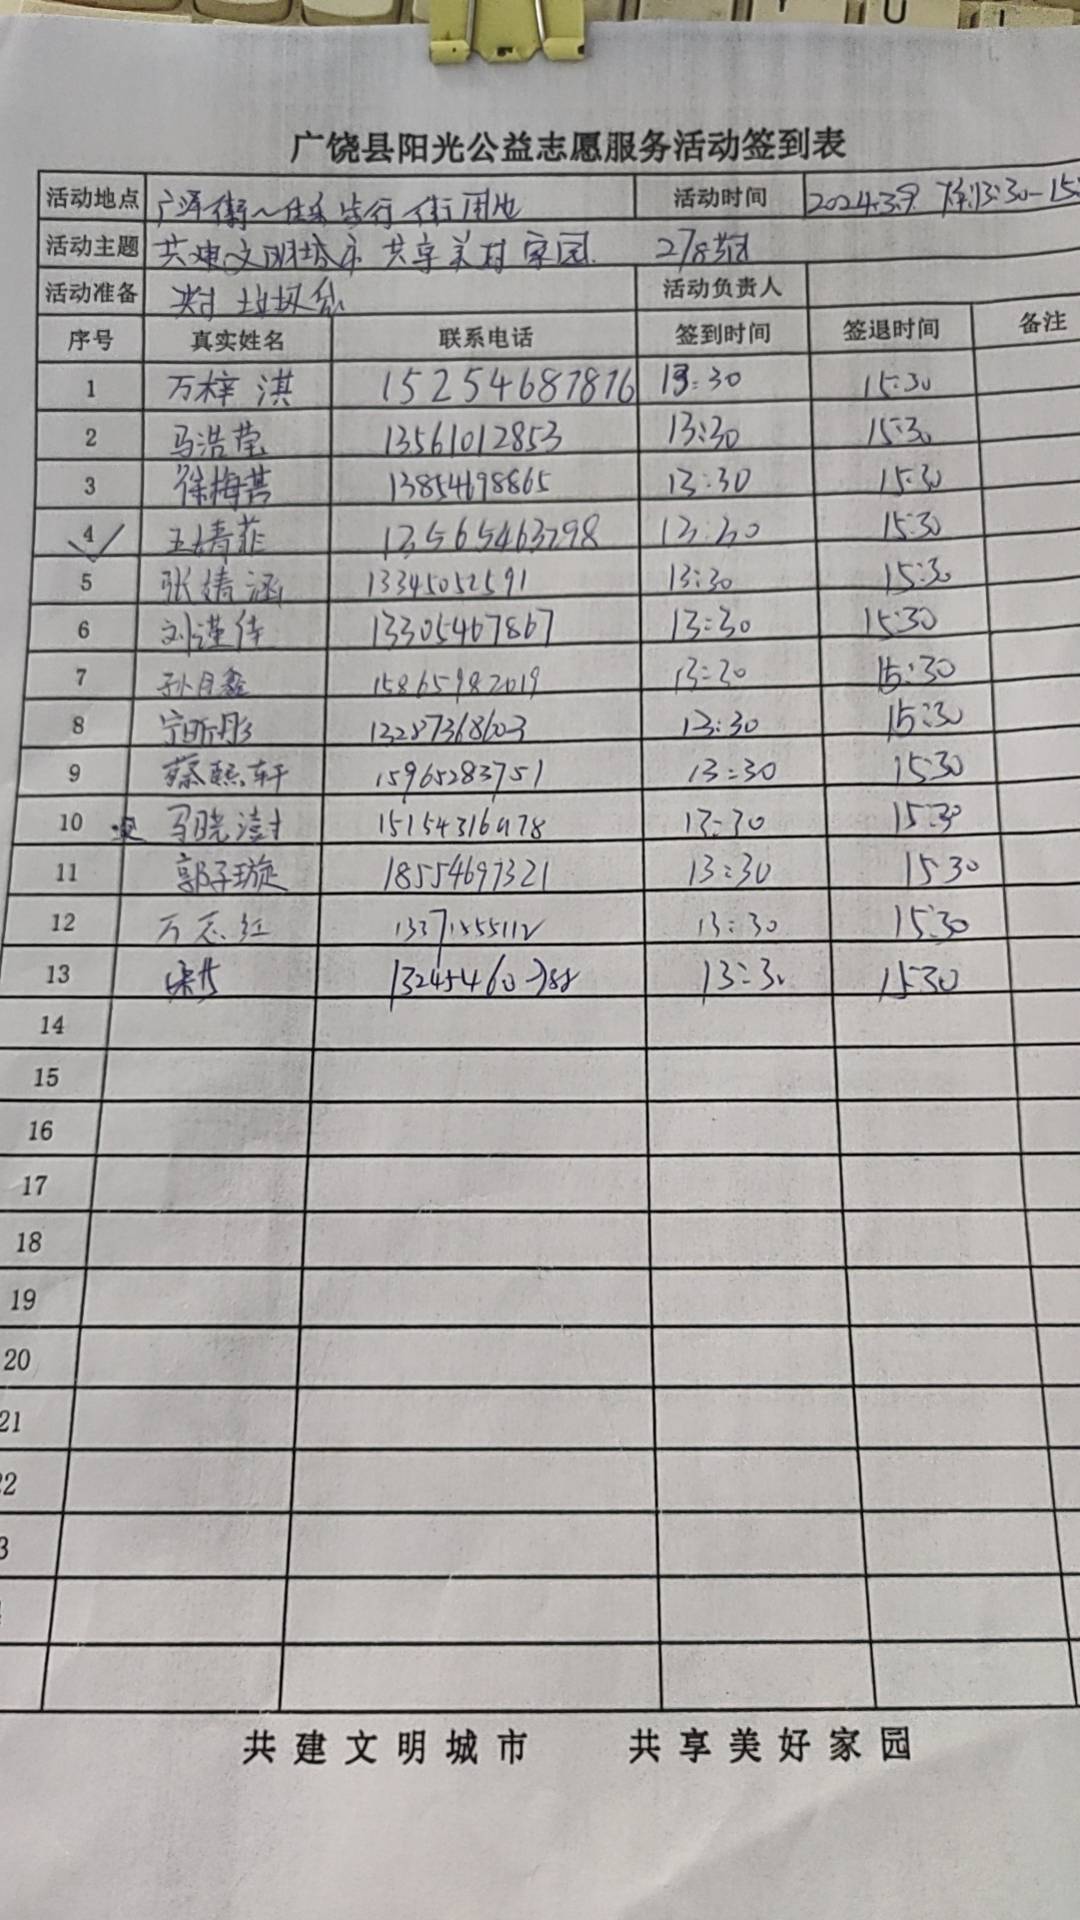 广饶县阳光公益志愿服务活动签到表
活动地点 活动时间 2024.3.9. 13:30-15
活动主题 共建文明城市 共享美好家园. 278
活动准备 垃圾袋 活动负责人
序号 真实姓名 联系电话 签到时间 签退时间 备注
1 万梓淇 15254687876 13:30 15:30
2 马浩莹 13561012853 13:30 15:30
3 徐梅菩 13854698865 13:30 15:30
4 王婧菲 13565463798 13:30 15:30
5 张婧涵 13345052591 13:30 15:30
6 刘谨佳 13305467867 13:30 15:30
7 孙月鑫 15865982019 13:30 15:30
8 宁昕彤 13287368603 13:30 15:30
9 蔡熙轩 15965283751 13:30 15:30
10 马晓澍 13:30 15:30
11 郭子璇 18554697321 13:30 15:30
12 万志红 13371555112 13:30 15:30
13 13:30 15:30
14
15
16
17
18
19
20
21
22
3
共建文明城市 共享美好家园